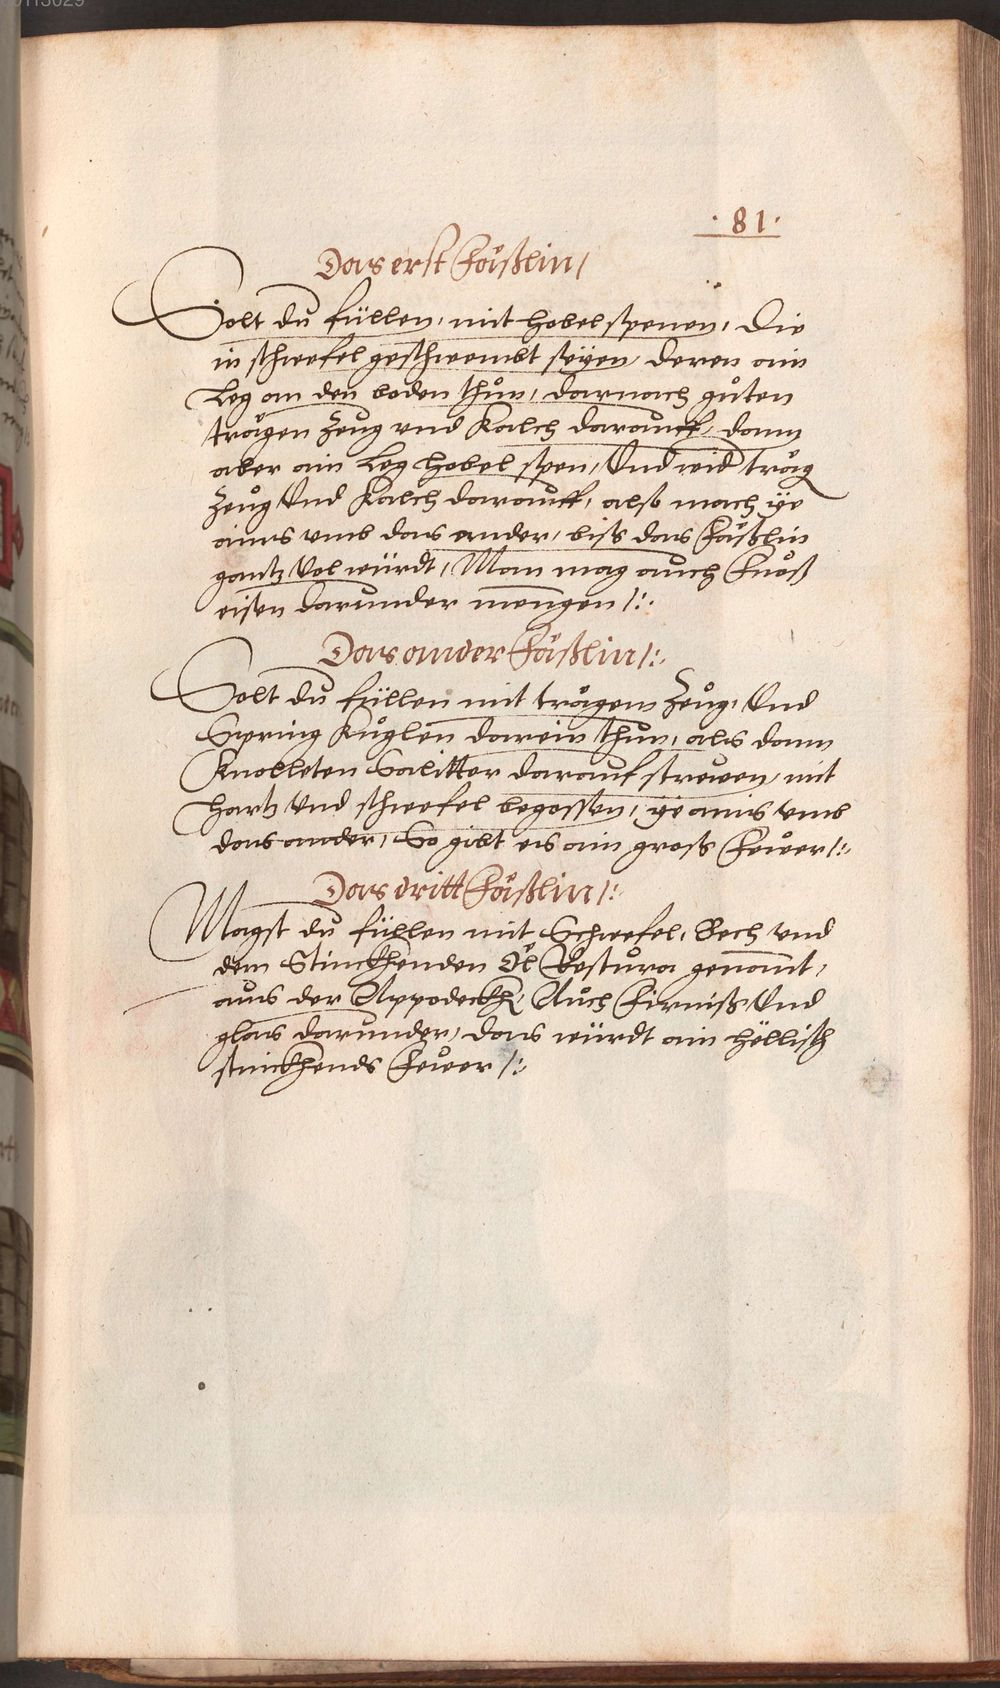 · 81 ·
Das erst Fäßlin /
Solt du füllen, mit hobelspenen, Die
in schwefel geschwembt seyen, deren ain
Leg an den boden thůn, darnach gůten
trägen Zeug vnd Kalch darauff, dann
aber ain Leg hobel spen, Vnd wid träg
Zeug Vnd Kalch darauff, also mach ye
ains vmb das ander, biß das Fäßlin
gantz Vol würdt, Man mag auch Fuoß
eisen darunder mengen /:.
Das ander Fäßlin /:.
Solt du füllen mit trägem Zeug, Vnd
Spring Kuglen darein thun, als dann
Knolleten Salitter darauf strewen, mit
hartz Vnd schwefel begossen, ye ains vmb
das ander, So gibt es ain gross Fewer /:.
Das dritt Fäßlin /:.
Magst du füllen mit Schwefel, Bech vnd
dem Stinckhenden Öl genannt,
aus der Appodeckh, Auch Firniß Vnd
glas darunder, das würdt ain hëllisch
stinckhends Fewer /:.